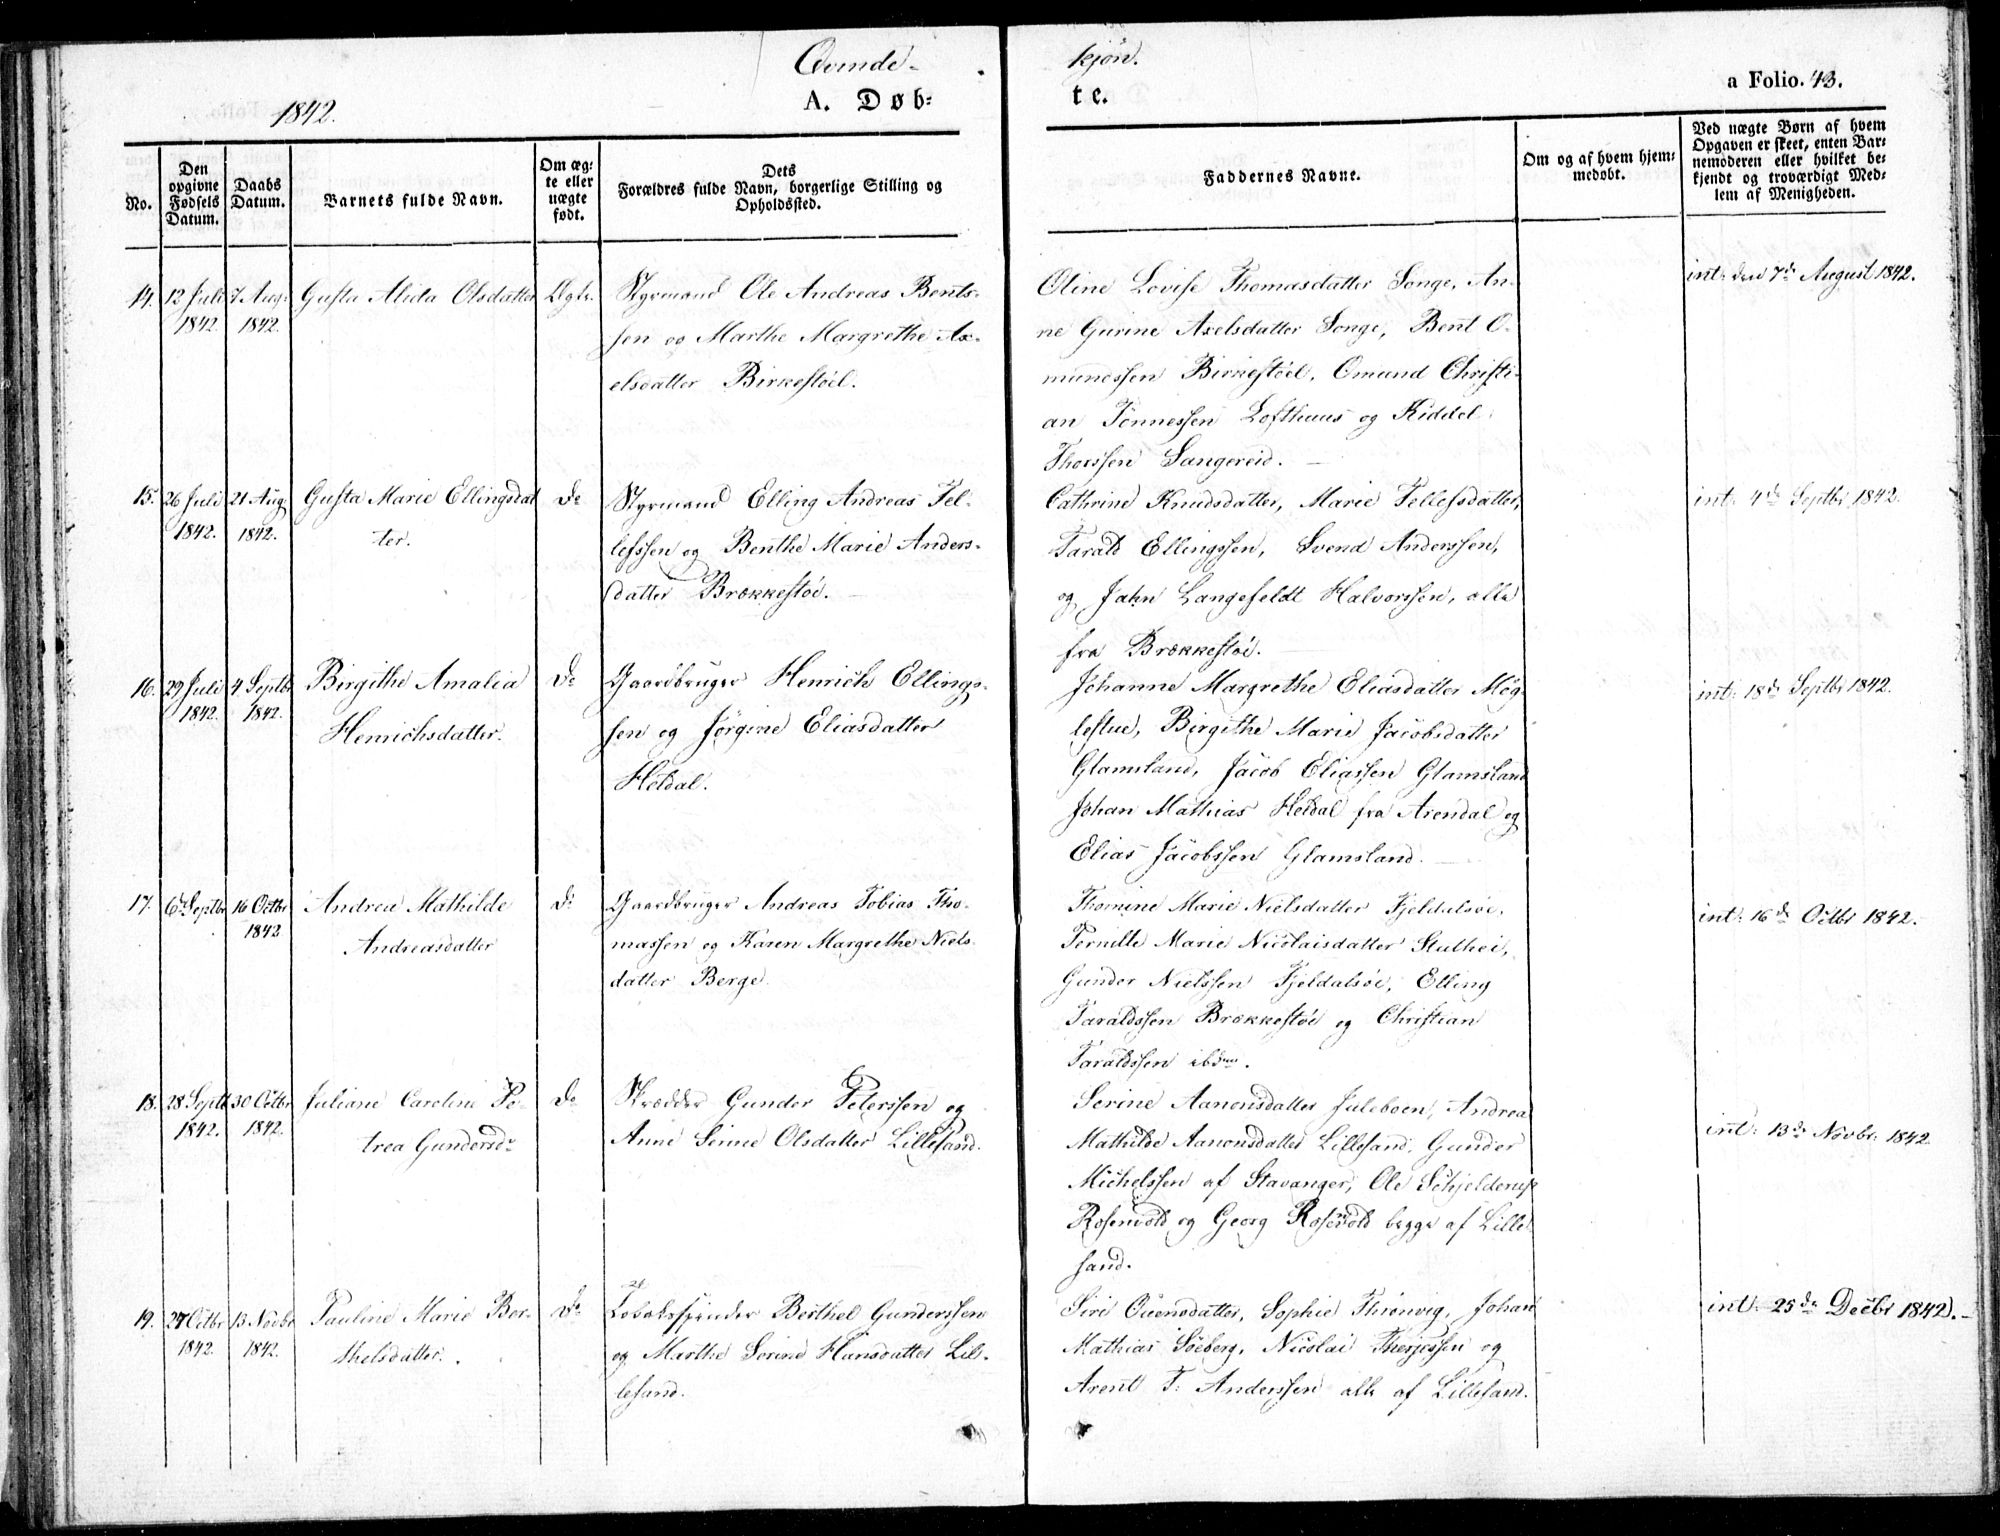 Qvinde-
kjøn.
1842.
A. Døb-
te.
a Folio. 43.
No.
Den opgivne Fødsels Datum.
Daabs Datum.
Barnets fulde Navn.
Om ægte eller uægte født.
Dets Forældres fulde Navn, borgerlige Stilling og Opholdssted.
Faddernes Navne.
Om og af hvem hjemmedøbt.
Ved uægte Børn af hvem Opgaven er skeet, enten Barnemoderen eller hvilket bekjendt og troværdigt Medlem af Menigheden.
14. 12 Juli 1842 7 Aug: 1842. Gusta Alida Olsdatter Ægte.
Styrmand Ole Andreas Bents-
sen og Marthe Margrethe Ax-
elsdatter Birkestöel.
Oline Lovise Thomasdatter Songe, An-
ne Gurine Axelsdatter Songe, Bent O-
mundssen Birkestöel, Omund Christi-
an Tönnessen Lofthuus og Kiddel
Thorssen Sangereid.
int: den 7de August 1842.
15. 26 Juli 1842. 21 Aug 1842. Gusta Marie Ellingsdat
ter.
Do
Styrmand Elling Andreas Tel-
lefssen og Benthe Marie Anders-
datter Brækkestöe.
Cathrine Knudsdatter, Marie Tellefsdatter,
Tarald Ellingssen, Svend Anderssen,
og Jahn Langefeldt Halvorssen, alle
fra Brækkestöe.
int: 4de Septbr 1842.
16. 29 Juli 1842. 4 Septbr 1842. Birgithe Amalia
Henrichsdatter.
Do
Gaardbruger Henrich Ellings-
sen og Jörgine Eliasdatter
Heldal.
Johanne Margrethe Eliasdatter Mög-
lestue, Birgithe Marie Jacobsdatter
Glamsland, Jacob Eliassen Glamsland
Johan Mathias Heldal fra Arendal og
Elias Jacobssen Glamsland.
int: 18de Septbr 1842.
17. 6te Septbr 16 Octbr 1842 Andrea Mathilde
Andreasdatter
Do
Gaardbruger Andreas Tobias Tho-
massen og Karen Margrethe Niels-
datter Berge.
Thomine Marie Nielsdatter Fjeldalsöe,
Pernille Marie Nicolaisdatter Stulhei,
Gunder Nielssen Fjeldalsöe, Elling
Taraldssen Brækkestöe og Christian
Taraldssen ibdm.
int: 16de Octbr 1842.
18. 28 Septbr 1842. 30 Octbr 1842. Juliane Caroline Pe-
trea Gundersdr
Do
Skrædder Gunder Peterssen og
Anne Sinne Olsdatter Lillesand.
Serine Aanonsdatter Juleboen, Andrea
Mathilde Aanonsdatter Lillesand, Gunder
Michelssen af Stavanger, Ole Schjelderup
Rosenvold og Georg Rosenvold begge af Lille-
sand.
int: 13de Novbr: 1842.
19. 27 Octbr 1842. 13 Novbr 1842. Pauline Marie Ber-
thelsdatter.
Do
Tobaksspinder Berthel Gunderssen
og Marthe Serine Hansdatter Lil-
lesand.
Siri Evensdatter, Sophie Thrönveg, Johan
Mathias Söeberg, Nicolai Therjessen og
Arent T: Anderssen alle af Lillesand.
int: 25de Decbr 1842.